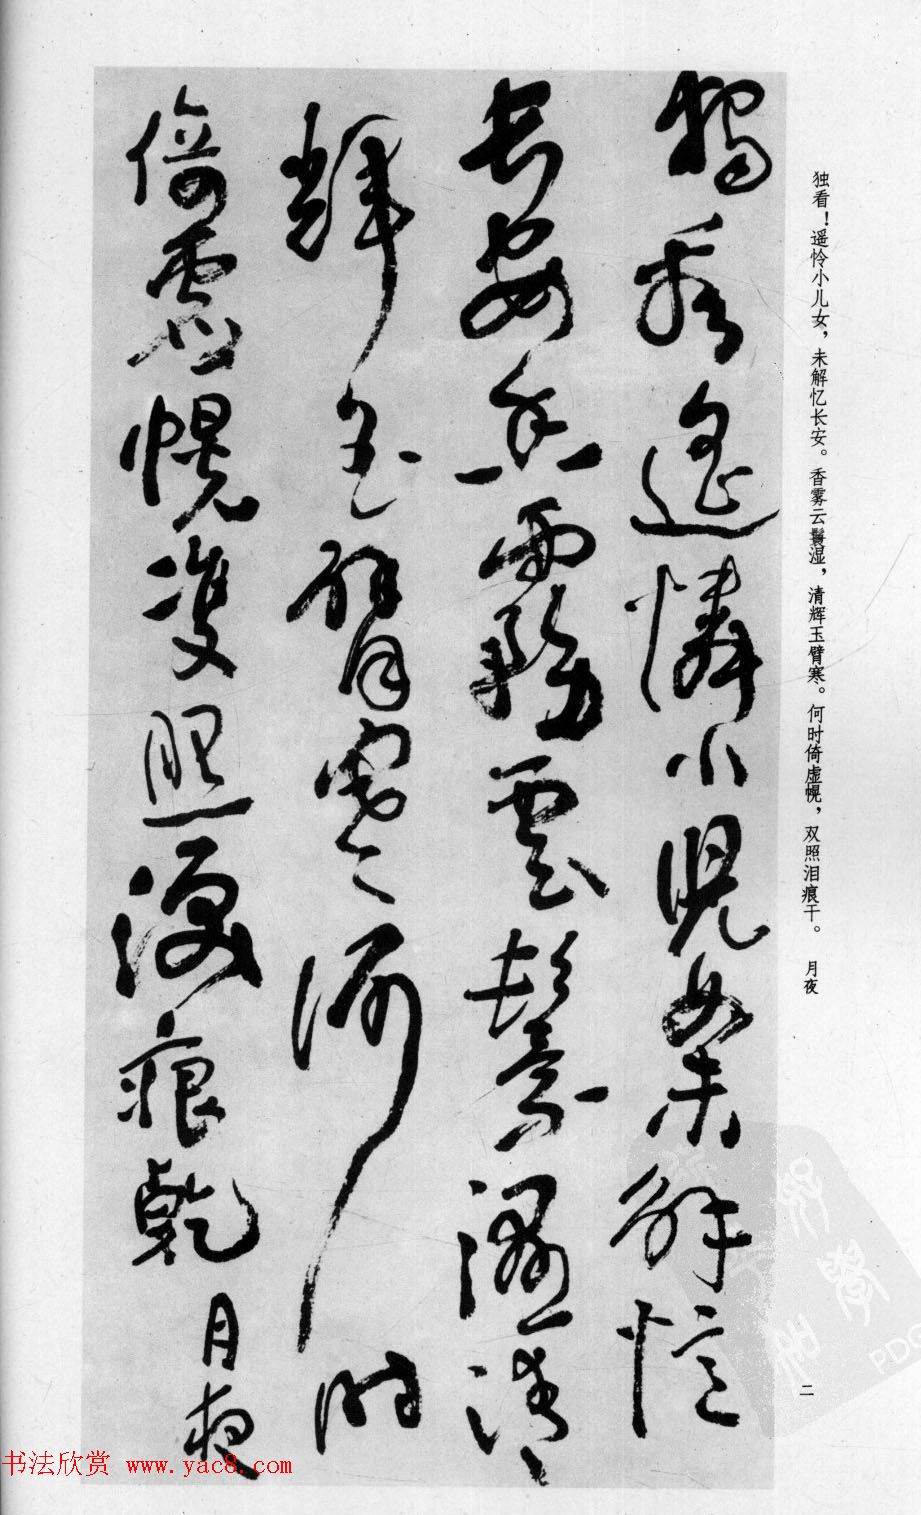 独看！遥怜小儿女，未解忆长安。香雾云鬟湿，清辉玉臂寒。何时倚虚幌，双照泪痕干。 月夜
獨看遙憐小兒女未解憶
長安香霧雲鬟濕清
輝玉臂寒何時
倚虛幌雙照淚痕乾 月夜
二
书法欣赏 www.yac8.com
PDG